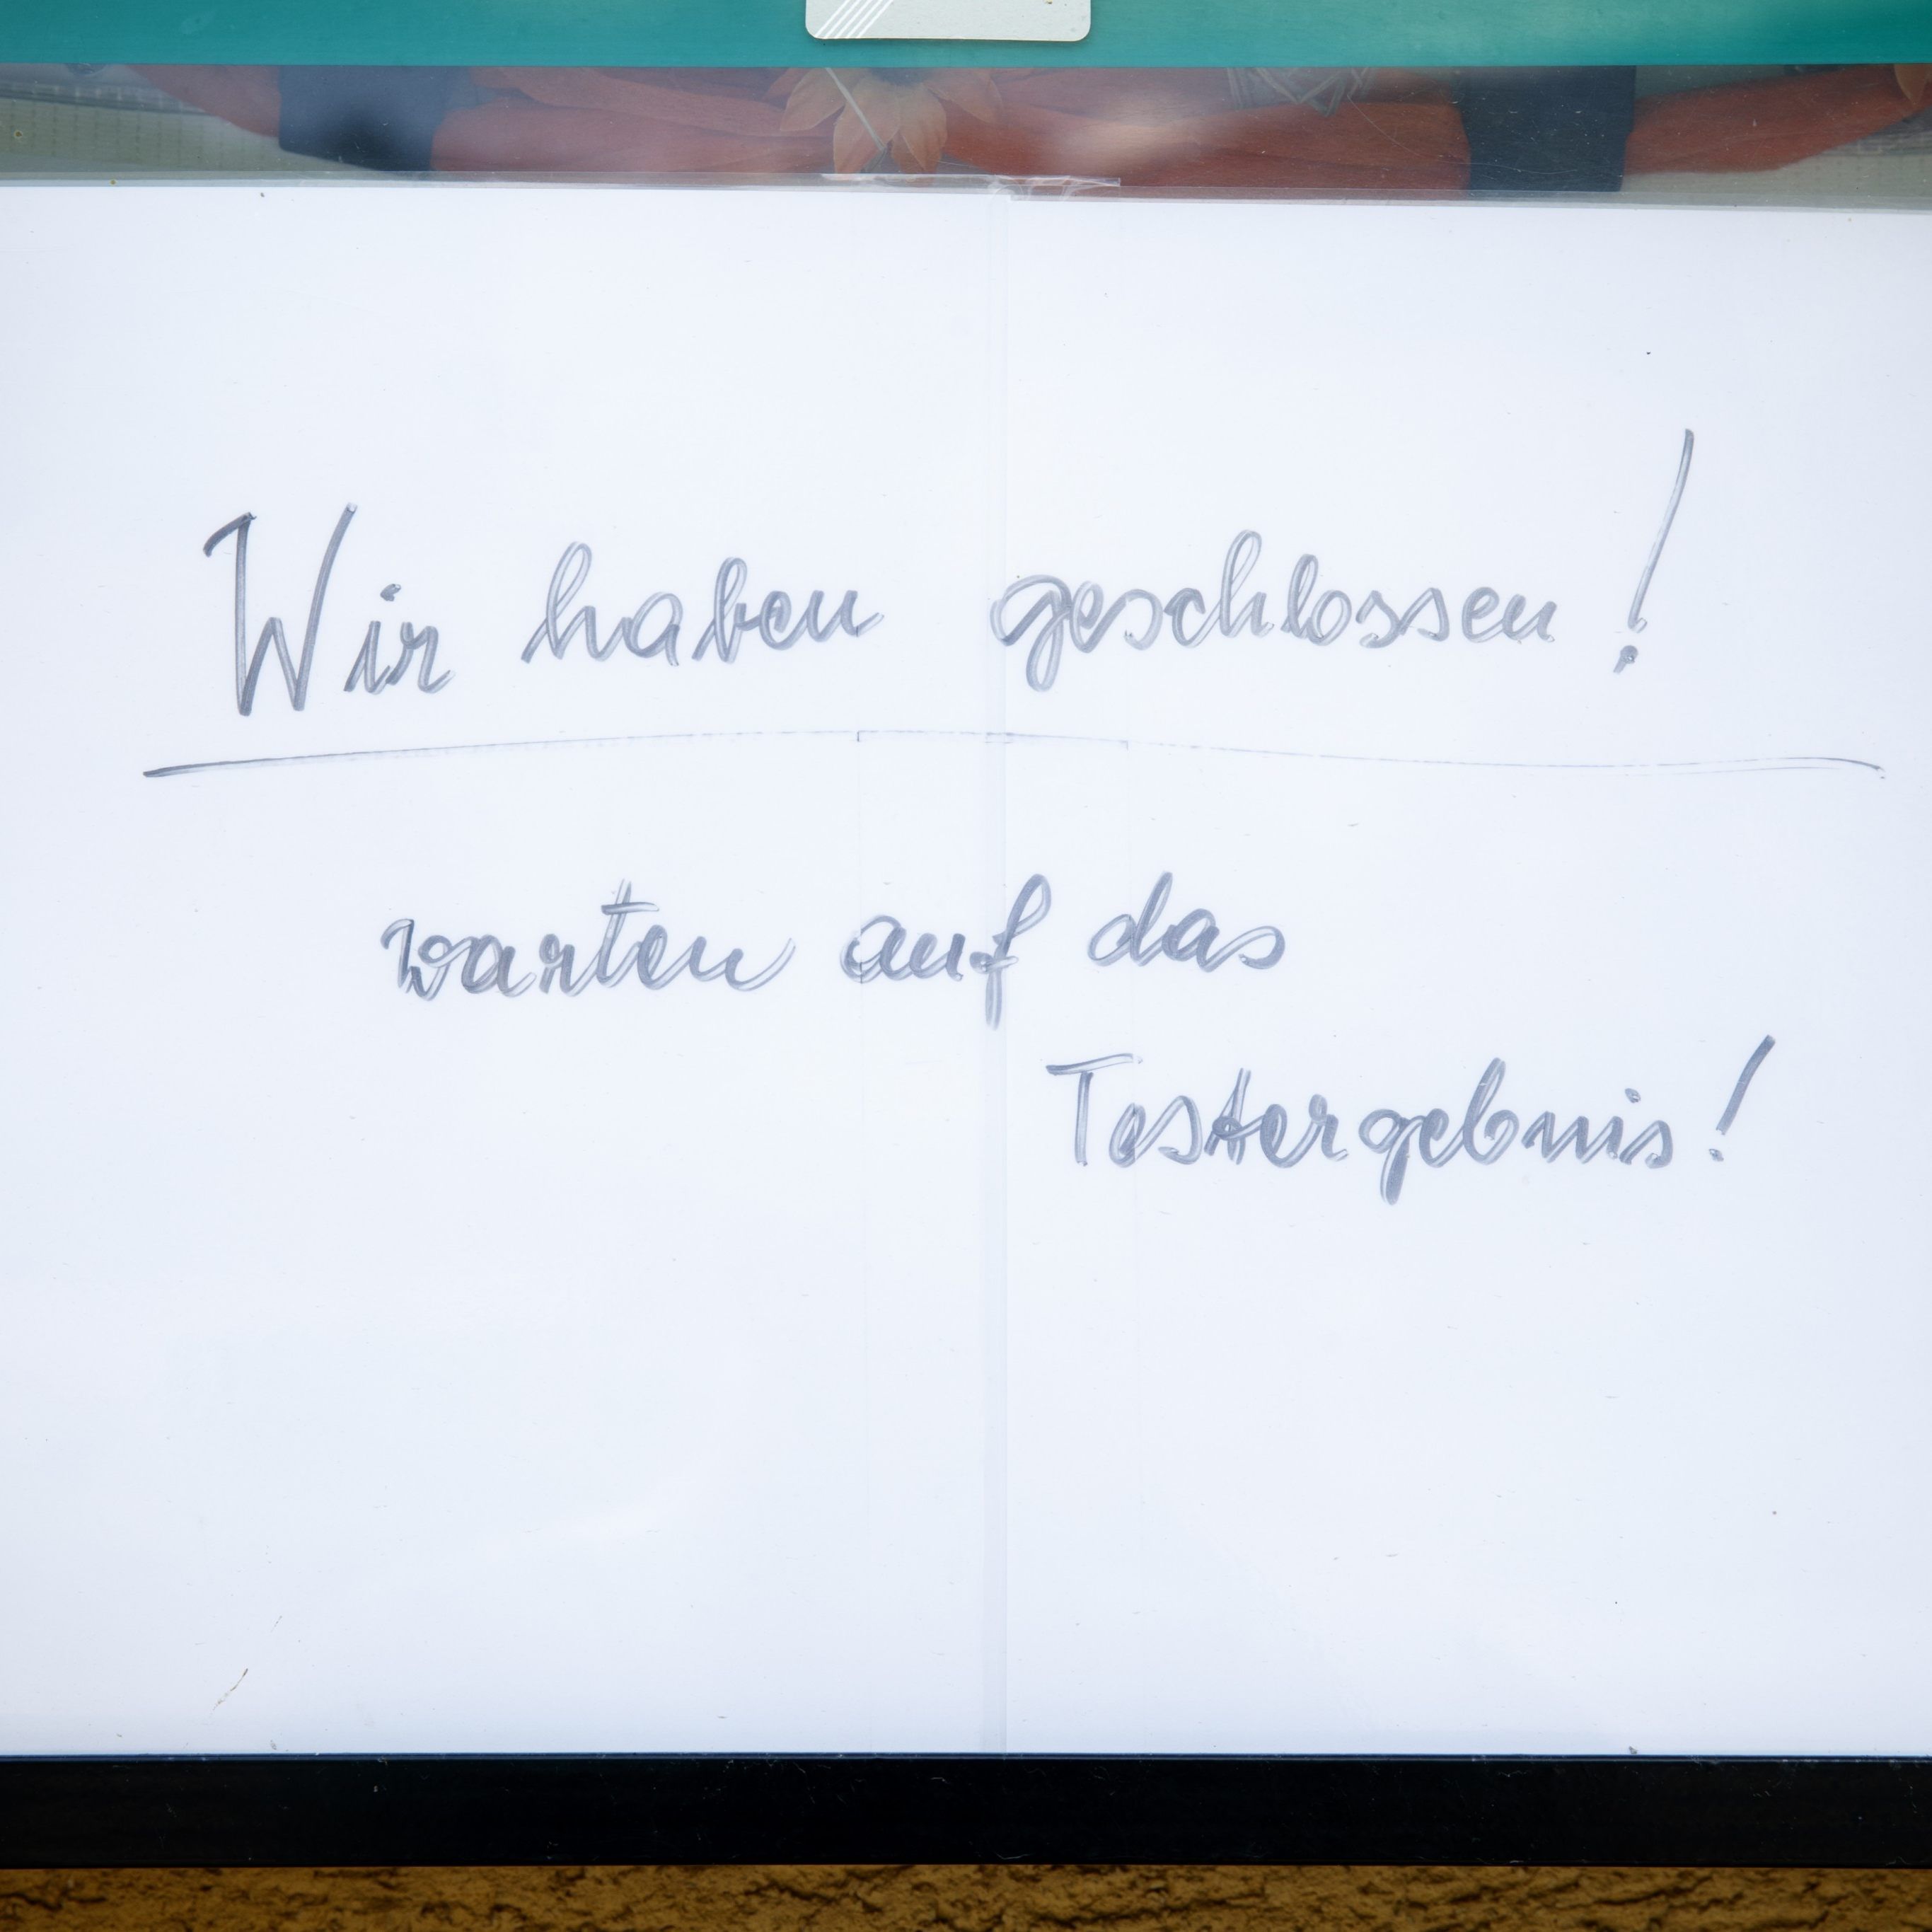 Wir haben geschlossen!
warten auf das
Testergebnis!